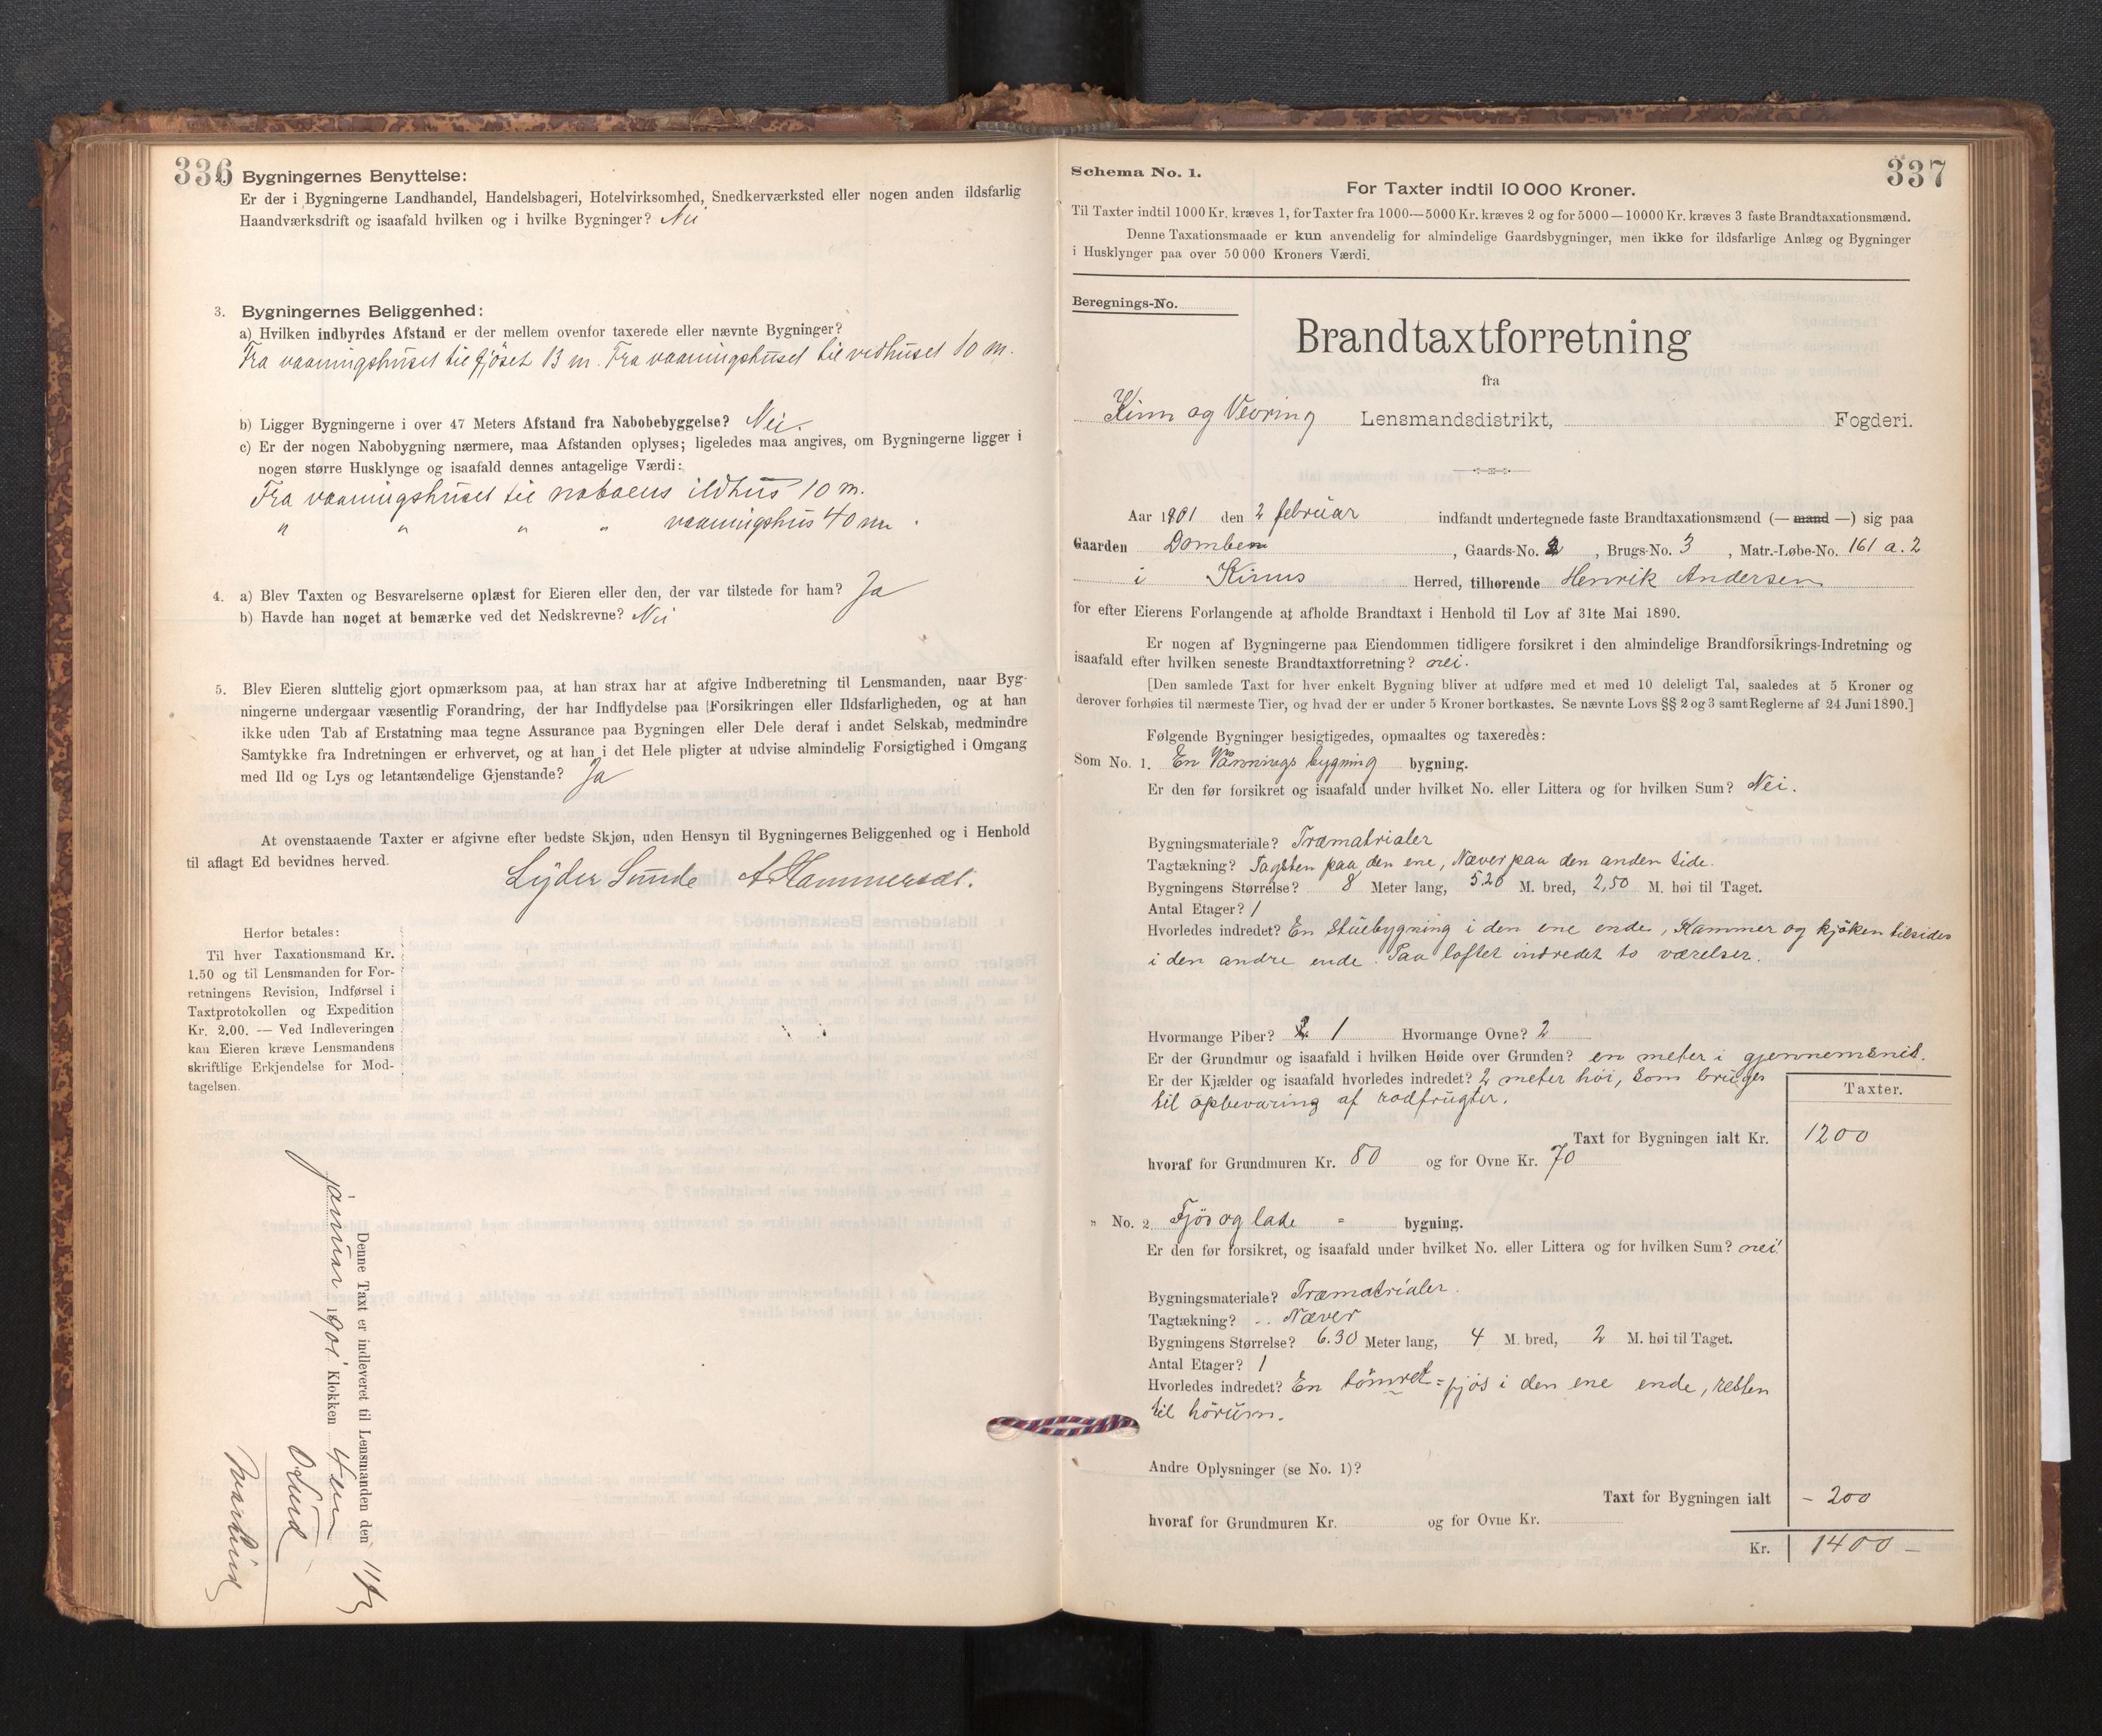 336
Bygningernes Benyttelse:
Er der i Bygningerne Landhandel, Handelsbageri, Hotelvirksomhed, Snedkerværksted eller nogen anden ildsfarlig
Haandværksdrift og isaafald hvilken og i hvilke Bygninger? Nei
3. Bygningernes Beliggenhed:
a) Hvilken indbyrdes Afstand er der mellem ovenfor taxerede eller nævnte Bygninger?
Fra vaaningshuset til fjöset 13 m. Fra vaaningshuset til vedhuset 10 m.
b) Ligger Bygningerne i over 47 Meters Afstand fra Nabobebyggelse? Nei.
c) Er der nogen Nabobygning nærmere, maa Afstanden oplyses; ligeledes maa angives, om Bygningerne ligger i
nogen større Husklynge og isaafald dennes antagelige Værdi:
Fra vaaningshuset til naboens ildhus 10 m.
" " " " vaaningshus 40 m.
4. a) Blev Taxten og Besvarelserne oplæst for Eieren eller den, der var tilstede for ham? Ja
b) Havde han noget at bemærke ved det Nedskrevne? Nei
5. Blev Eieren sluttelig gjort opmærksom paa, at han strax har at afgive Indberetning til Lensmanden, naar Byg-
ningerne undergaar væsentlig Forandring, der har Indflydelse paa Forsikringen eller Ildsfarligheden, og at han
ikke uden Tab af Erstatning maa tegne Assurance paa Bygningen eller Dele deraf i andet Selskab, medmindre
Samtykke fra Indretningen er erhvervet, og at han i det Hele pligter at udvise almindelig Forsigtighed i Omgang
med Ild og Lys og letantændelige Gjenstande? Ja
At ovenstaaende Taxter er afgivne efter bedste Skjøn, uden Hensyn til Bygningernes Beliggenhed og i Henhold
til aflagt Ed bevidnes herved.
Lyder Sunde A Hammersæt.
Herfor betales:
Til hver Taxationsmand Kr.
1.50 og til Lensmanden for For-
retningens Revision, Indførsel i
Taxtprotokollen og Expedition
Kr. 2.00. — Ved Indleveringen
kan Eieren kræve Lensmandens
skriftlige Erkjendelse for Mod-
tagelsen.
Denne Taxt er indleveret til Lensmanden den 11te
januar 1901 Klokken 4 em
337
Schema No. 1.
For Taxter indtil 10 000 Kroner.
Til Taxter indtil 1000 Kr. kræves 1, for Taxter fra 1000—5000 Kr. kræves 2 og for 5000—10000 Kr. kræves 3 faste Brandtaxationsmænd.
Denne Taxationsmaade er kun anvendelig for almindelige Gaardsbygninger, men ikke for ildsfarlige Anlæg og Bygninger
i Husklynger paa over 50 000 Kroners Værdi.
Beregnings-No.
Brandtaxtforretning
fra
Kinn og Vevring Lensmandsdistrikt, Fogderi.
Aar 1901 den 2 februar indfandt undertegnede faste Brandtaxationsmænd (— mand —) sig paa
Gaarden Domben, Gaards-No. 2, Brugs-No. 3, Matr.-Løbe-No. 161 a. 2
i Kinns Herred, tilhørende Henrik Andersen
for efter Eierens Forlangende at afholde Brandtaxt i Henhold til Lov af 31te Mai 1890.
Er nogen af Bygningerne paa Eiendommen tidligere forsikret i den almindelige Brandforsikrings-Indretning og
isaafald efter hvilken seneste Brandtaxtforretning? nei.
[Den samlede Taxt for hver enkelt Bygning bliver at udføre med et med 10 deleligt Tal, saaledes at 5 Kroner og
derover forhøies til nærmeste Tier, og hvad der er under 5 Kroner bortkastes. Se nævnte Lovs §§ 2 og 3 samt Reglerne af 24 Juni 1890.]
Følgende Bygninger besigtigedes, opmaaltes og taxeredes:
Som No. 1. En Vånnings bygning bygning.
Er den før forsikret og isaafald under hvilket No. eller Littera og for hvilken Sum? Nei.
Bygningsmateriale? Træmatrialer
Tagtækning? Tagsten paa den ene, Næver paa den anden side.
Bygningens Størrelse? 8 Meter lang, 5.20 M. bred, 2,50 M. høi til Taget.
Antal Etager? 1
Hvorledes indredet? En Stuebygning i den ene ende, Kammer og kjöken tilsides
i den andre ende. Paa loftet indredet to værelser.
Hvormange Piber? 1 Hvormange Ovne? 2
Er der Grundmur og isaafald i hvilken Høide over Grunden? en meter i gjennemsnit.
Er der Kjælder og isaafald hvorledes indredet? 2 meter höi, som bruges
til opbevaring af rodfrugter.
Taxter.
Taxt for Bygningen ialt Kr. 1200
hvoraf for Grundmuren Kr. 80 og for Ovne Kr. 70
" No. 2. Fjös og lade = bygning.
Er den før forsikret, og isaafald under hvilket No. eller Littera og for hvilken Sum? nei.
Bygningsmateriale? Træmatrialer.
Tagtækning? Næver
Bygningens Størrelse? 6.30 Meter lang, 4 M. bred, 2 M. høi til Taget.
Antal Etager? 1
Hvorledes indredet? En tömret = fjös i den ene ende, resten
til hörum.
Andre Oplysninger (se No. 1)?
Taxt for Bygningen ialt - 200
hvoraf for Grundmuren Kr. og for Ovne Kr.
Kr. 1400 -